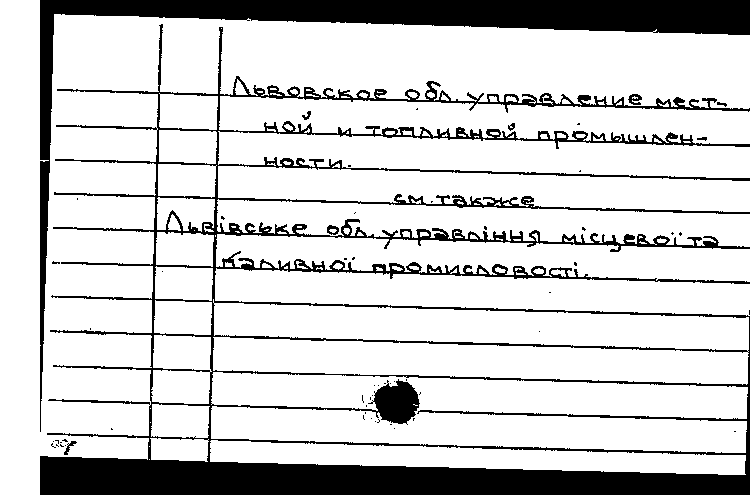 Львовское обл. управление мест-
ной и топливной промышлен-
ности.
см. также
Львівське обл. управління місцевої та
паливної промисловості.